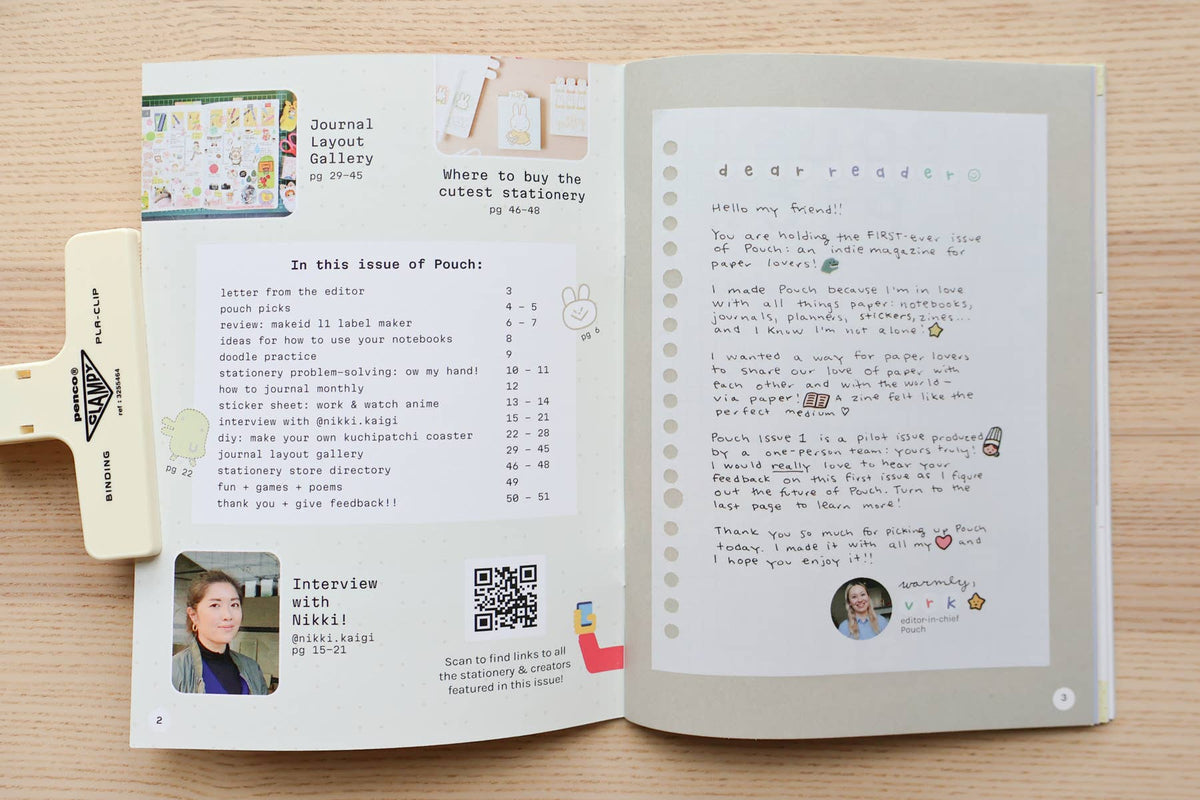 Journal
Layout
Gallery
pg 29–45
Where to buy the
cutest stationery
pg 46–48
In this issue of Pouch:
letter from the editor 3
pouch picks 4 – 5
review: makeid l1 label maker 6 – 7
ideas for how to use your notebooks 8
doodle practice 9
stationery problem–solving: ow my hand! 10 – 11
how to journal monthly 12
sticker sheet: work & watch anime 13 – 14
interview with @nikki.kaigi 15 – 21
diy: make your own kuchipatchi coaster 22 – 28
journal layout gallery 29 – 45
stationery store directory 46 – 48
fun + games + poems 49
thank you + give feedback!! 50 – 51
pg 6
pg 22
Interview
with
Nikki!
@nikki.kaigi
pg 15–21
Scan to find links to all
the stationery & creators
featured in this issue!
2
PLA-CLIP
penco®
CLAMPY
ref : 3255464
BINDING
dear reader
Hello my friend!!
You are holding the FIRST-ever issue
of Pouch: an indie magazine for
paper lovers!
I made Pouch because I'm in love
with all things paper: notebooks,
journals, planners, stickers, zines...
and I know I'm not alone!
I wanted a way for paper lovers
to share our love of paper with
each other and with the world –
via paper! A zine felt like the
perfect medium ♡
Pouch Issue 1 is a pilot issue produced
by a one-person team: yours truly!
I would really love to hear your
feedback on this first issue as I figure
out the future of Pouch. Turn to the
last page to learn more!
Thank you so much for picking up Pouch
today. I made it with all my and
I hope you enjoy it!!
warmly,
vrk
editor-in-chief
Pouch
3